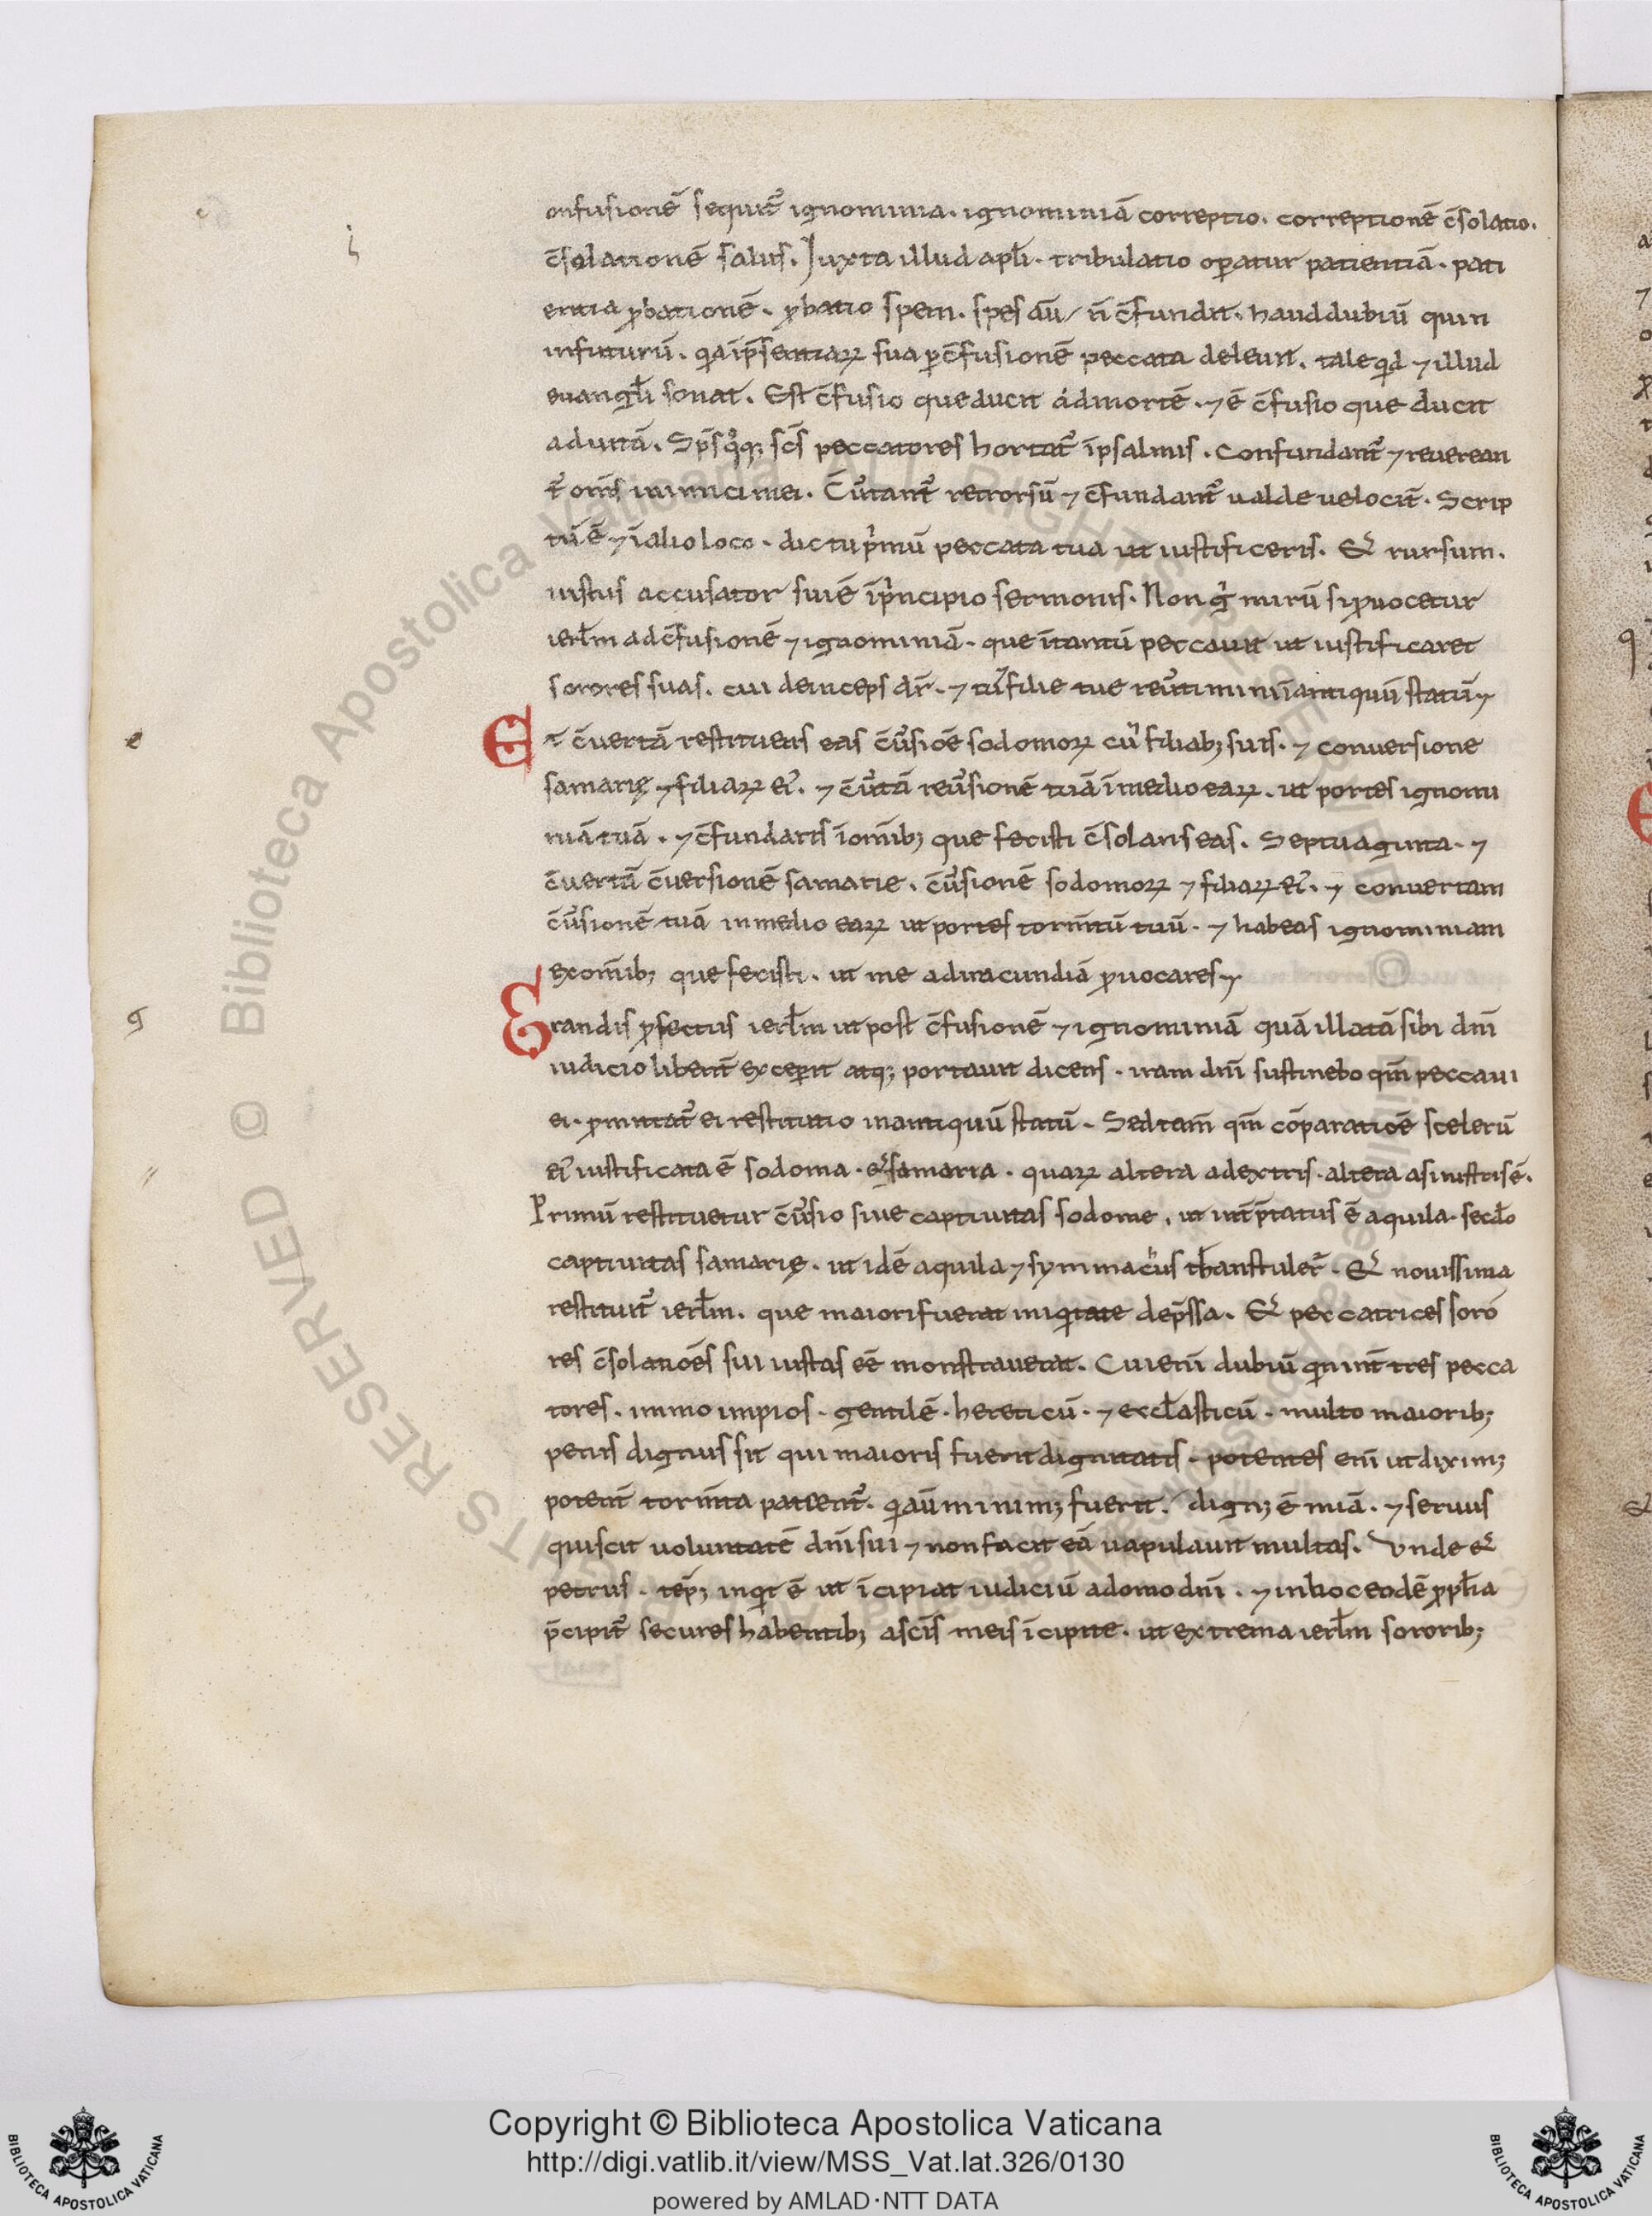 onfusionē sequit᷑ ignominia. ignominiā correptio. correptionē c̄solatio.
c̄solationē salus. Juxta illud apl̄i. tribulatio oꝑatur patientiā. pati
entia ꝓbationē. ꝓbatio spem. spes aū/ n̄ c̄fundit. haud dubiū quin
infuturū. qa īp̄sentiaꝝ sua ꝑ c̄fusionē peccata deleunt. tale qd ⁊ illud
euangl̄ii sonat. Est c̄fusio que ducit ad mortē. ⁊ ē c̄fusio que ducit
ad uitā. Sp̄s qͦqꝫ sc̄s peccatores hortat᷑ ī psalmis. Confundant᷑ ⁊ reuerean
t᷑ om̄s inimici mei. C̄uertant᷑ retrorsū ⁊ c̄fundant᷑ ualde uelocit̄. Scrip
tū ē ⁊ ī alio loco. dic tu pͥmū peccata tua ut iustificeris. Et rursum.
iustus accusator sui ē ī pͥncipio sermonis. Non gͦ mirū si ꝓuocetur
ierl̄m ad c̄fusionē ⁊ ignominiā. que ītantū peccauit ut iustificaret
sorores suas. cui deinceps dr̄. ⁊ tu ⁊ filie tue reu͛timini ī antiquū statū
Et c̄uertā restituens eas c̄u͛sioē sodomoꝝ cū filiabꝫ suis. ⁊ conuersione
samarię ⁊ filiaꝝ eiꝰ. ⁊ c̄u͛tā reu͛sionē tuā ī medio eaꝝ. ut portes ignomi
niā tuā. ⁊ c̄fundaris ī om̄ibꝫ que fecisti c̄solans eas. Septuaginta. ⁊
c̄uertā c̄uersionē samarie. c̄u͛sionē sodomoꝝ ⁊ filiaꝝ eiꝰ. ⁊ conuertam
c̄u͛sionē tuā in medio eaꝝ ut portes torm̄tū tuū. ⁊ habeas ignominiam
ex om̄ibꝫ que fecisti. ut me ad iracundiā ꝓuocares
Grandis ꝓfectus ierl̄m ut post c̄fusionē ⁊ ignominiā quā illatā sibi dn̄i
iudicio libent̄ exceꝑit atqꝫ portauit dicens. iram dn̄i sustinebo qm̄ peccaui
ei. ꝓmittat᷑ ei restitutio in antiquū statū. Sed tam̄ qm̄ cōparatioē scelerū
eiꝰ iustificata ē sodoma. et samaria. quaꝝ altera a dextris. altera a sinistris ē.
Primū restituetur c̄u͛sio siue captiuitas sodome. ut int̄p̄tatus ē aquila. secdo
captiuitas samarię. ut idē aquila ⁊ symmachus thanstuler᷑. Et nouissima
restituit᷑ ierl̄m. que maiori fuerat iniqͥtate dep̄ssa. Et peccatrices soro
res c̄solatōes sui iustas eē monstrauerat. Cui eni dubiū qͥn int̄ tres pecca
tores. immo impios. gentilē. hereticū. ⁊ eccl̄asticū. multo maioribꝫ
penis dignus sit qui maioris fuerit dignitatis. potentes eni ut diximꝫ
potent̄ torm̄ta patient᷑. qi aū minimꝫ fuerit. dignꝫ ē miā. ⁊ seruus
qui scit uoluntatē dn̄i sui ⁊ non facit eā uapulauit multas. Vnde et
petrus. tēpꝫ inqͥt ē ut īcipiat iudiciū a domo dn̄i. ⁊ in hoc eodē ꝓph̄a
p̄cipit᷑ secures habentibꝫ a sc̄is meis īcipite. ut extrema ierl̄m sororibꝫ
e
g
Copyright © Biblioteca Apostolica Vaticana
http://digi.vatlib.it/view/MSS_Vat.lat.326/0130
powered by AMLAD·NTT DATA
BIBLIOTECA APOSTOLICA VATICANA
BIBLIOTECA APOSTOLICA VATICANA